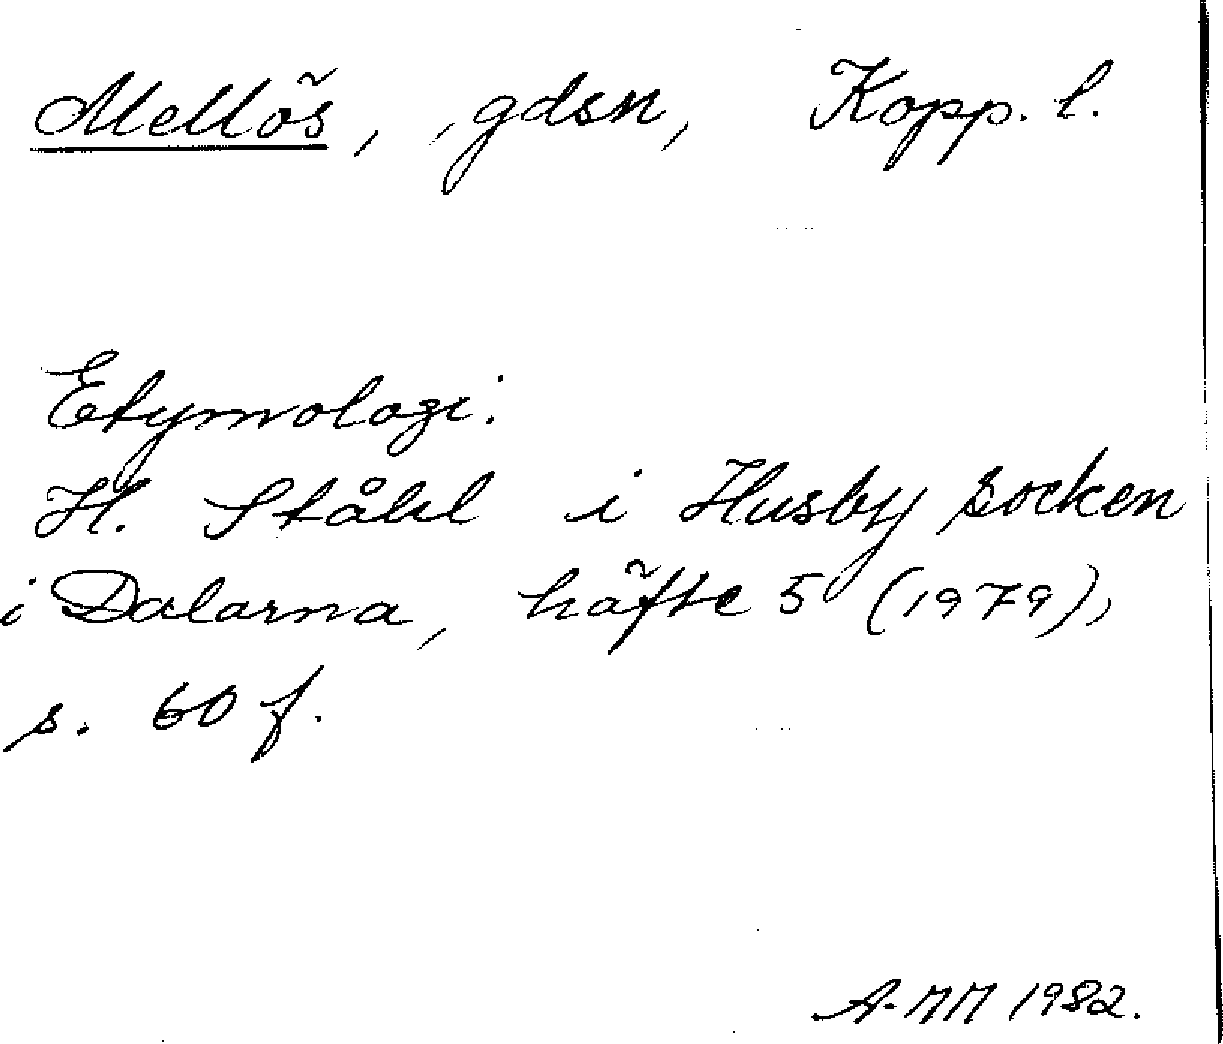 Mellös, gdsn, Kopp. l.
Etymologi:
H. Ståhl i Husby socken
i Dalarna, häfte 5 (1979),
s. 60 f.
A-MM 1982.